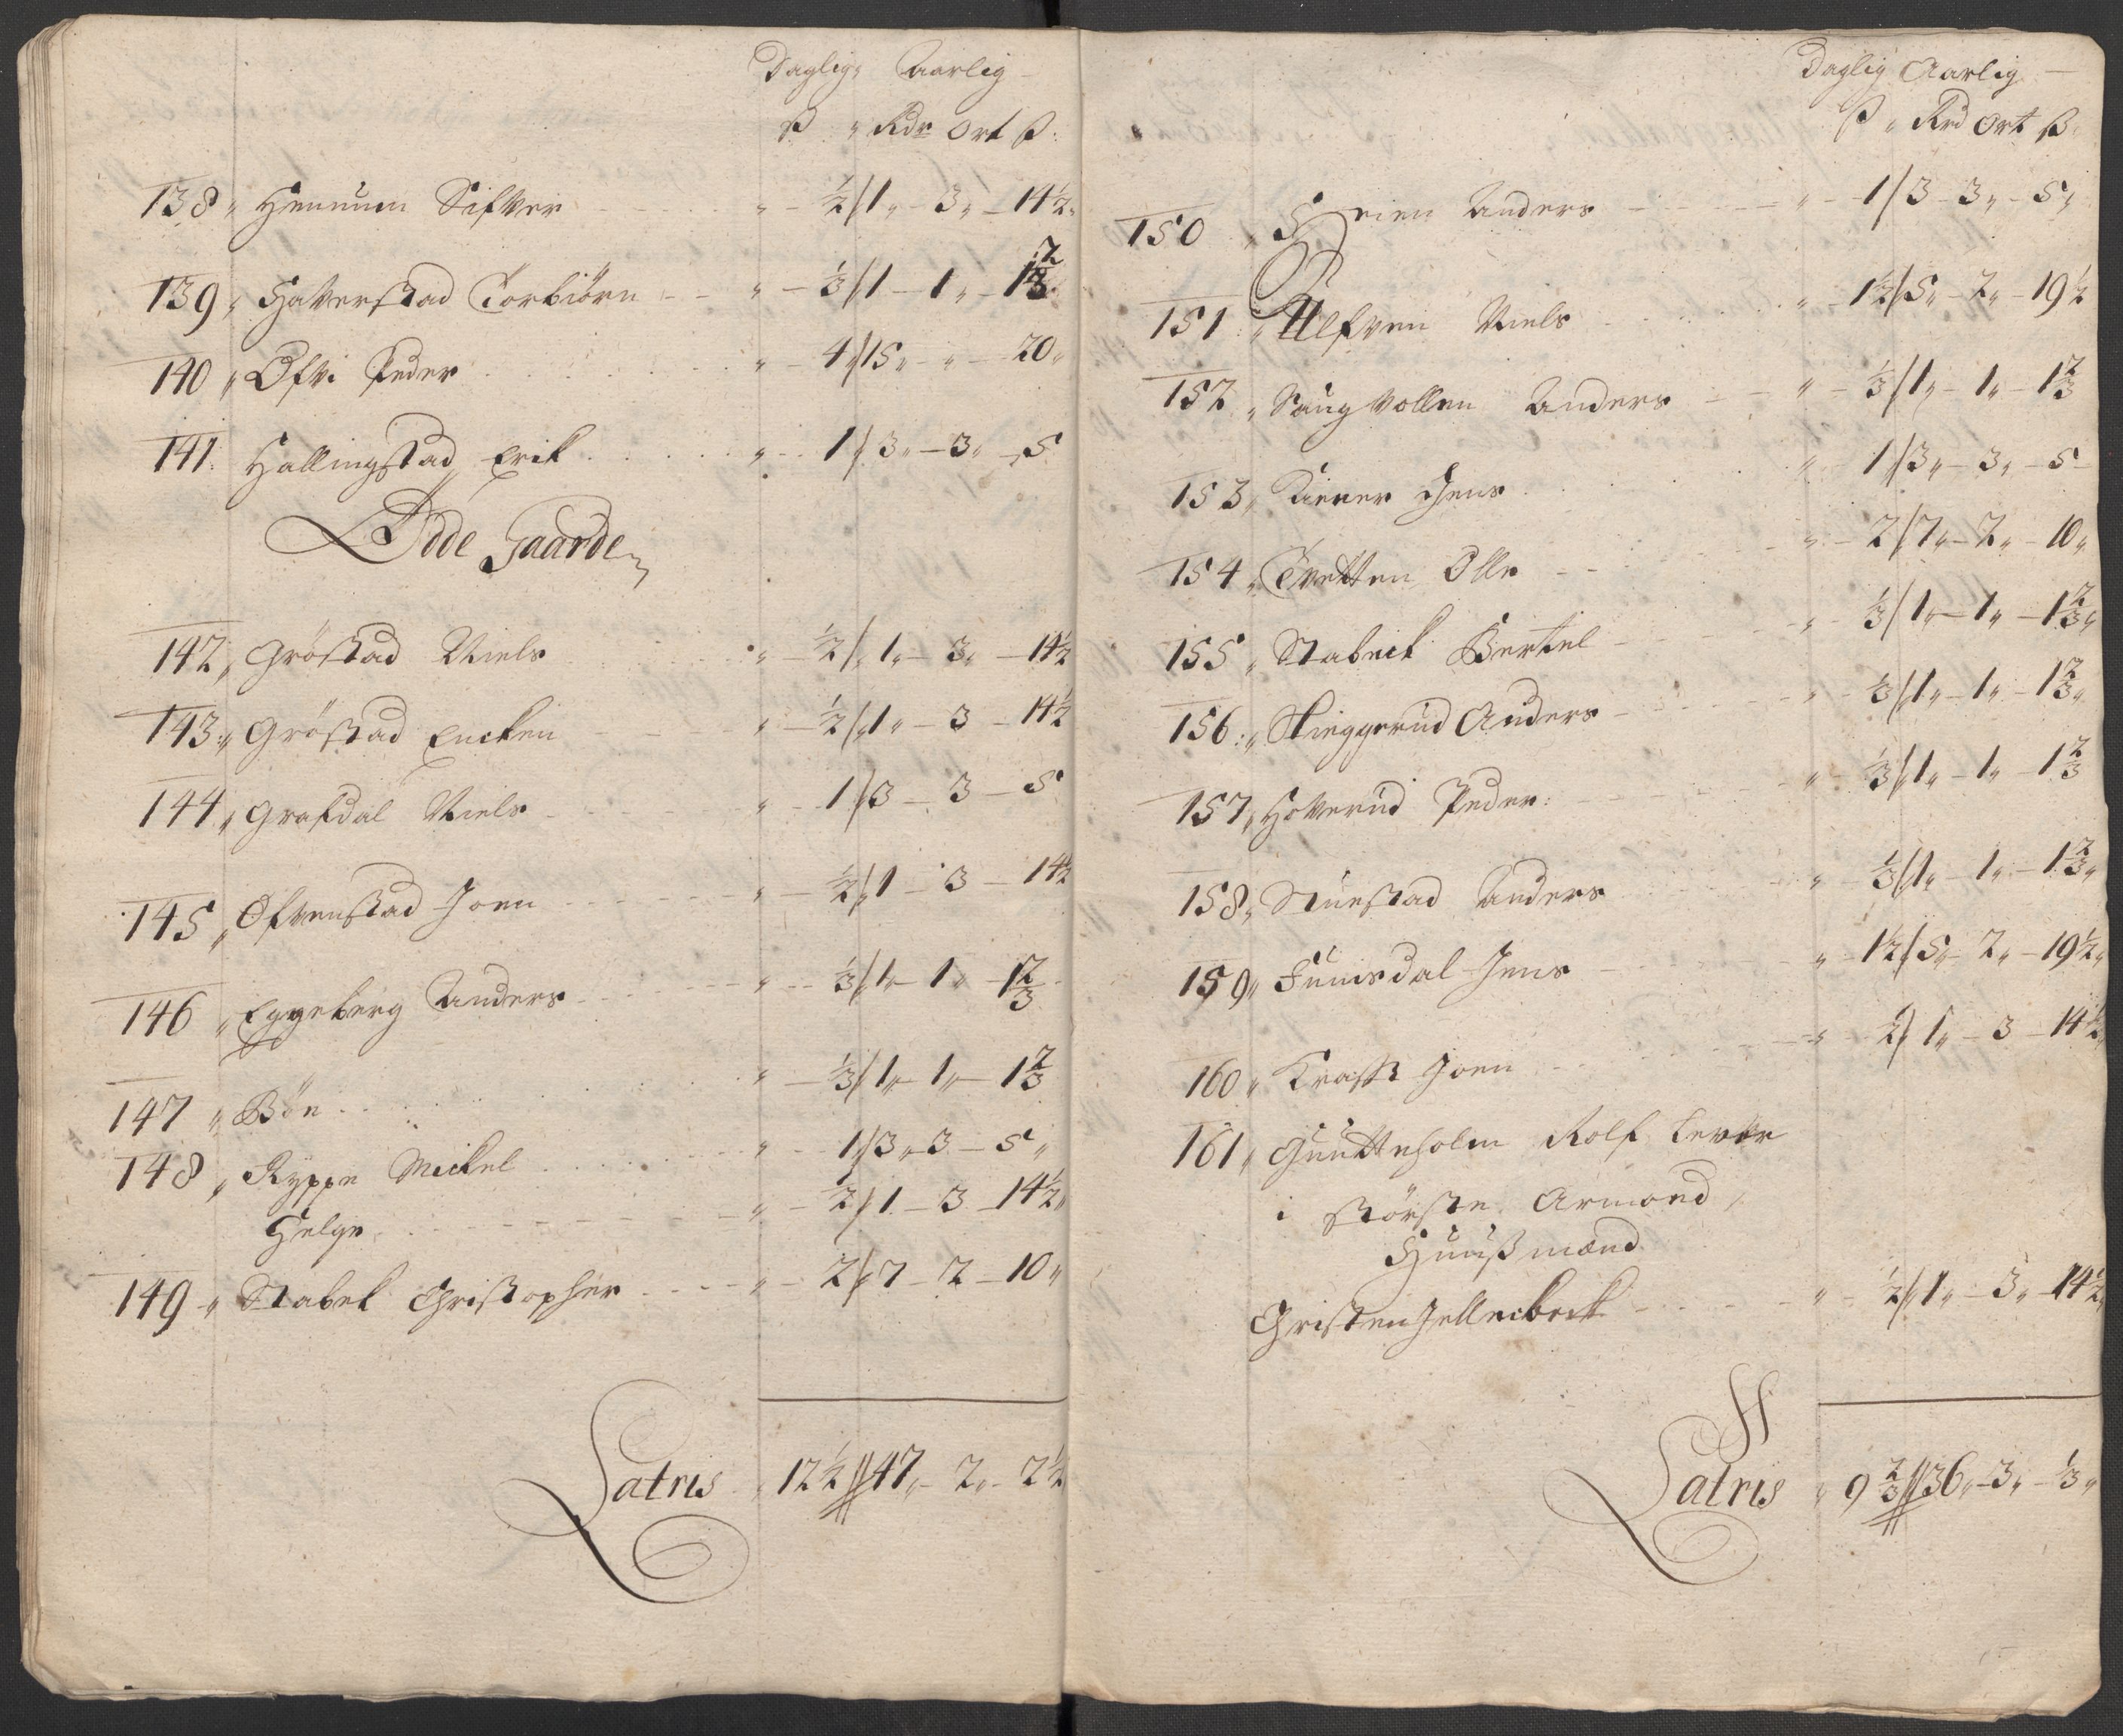 Daglig, Aarlig
ß „ Rdr Ort ß:
138 „ Hennum Sifver „ - ½ // 1 „ - 3 „ - 14½ „
139 „ Haverstad Torbiörn „ - ⅓ // 1 - 1 „ - 1⅔
140 „ Öfvi Peder „ - 4 // 15 „ - „ - 20 „
141 : Hallingstad Erik „ - 1 // 3 „ - 3 „ - 5
Öde Gaarde
142 „ Gröstad Niels „ - ½ // 1 „ - 3 „ - 14½
143 : „ Gröstad Encken „ - ½ // 1 „ - 3 - 14½
144 „ Grafdal Niels „ - 1 // 3 - 3 - 5
145 „ Öfvenstad Joen „ - ½ // 1 - 3 - 14½
146 „ Eggeberg Anders „ - ⅓ // 1 „ - 1 „ - 1⅔
147 „ Bön „ - ⅓ // 1 „ - 1 „ - 1⅔
148 „ Ryppe Mickel „ - 1 // 3 „ - 3 - 5 „
Helge „ - ½ // 1 - 3 - 14½ „
149 „ Stabek Christopher „ - 2 // 7 - 2 - 10 „
Latris „ 12½ // 47 „ - 2 „ - 2½
Daglig Aarlig
ß „ Rd Ort ß
150 „ Heien Anders „ - 1 / 3 - 3 „ - 5 „
151 : „ Ulfven Niels „ - 1½ // 5 „ - 2 „ - 19½
152 „ Saugvollen Anders „ - ⅓ // 1 „ - 1 „ - 1⅔
153 „ Kierer Jens „ - 1 // 3 „ - 3 „ - 5
154 „ Tvetten Olle „ - 2 // 7 „ - 2 „ - 10 „
155 „ Stabeck Bertel „ - ⅓ // 1 „ - 1 „ - 1⅔ „
156 : „ Skieggerud Anders „ - ⅓ // 1 „ - 1 „ - 1⅔ „
157 „ Hoverud Peder : „ - ⅓ // 1 „ - 1 „ - 1⅔
158 „ Stuestad Anders „ - ⅓ // 1 „ - 1 „ - 1⅔ „
159 „ Funisdal Jens „ - 1½ // 5 „ - 2 „ - 19½ „
160 „ Krafft Joen „ - ½ // 1 „ - 3 - 14½ „
161 „ Rolf Lever
i störste Armoed /
Huußmænd
Christen Jellebeck „ - ½ // 1 „ - 3 „ - 14½ „
Latris „ 9⅔ // 36 „ - 3 „ - ⅓ „